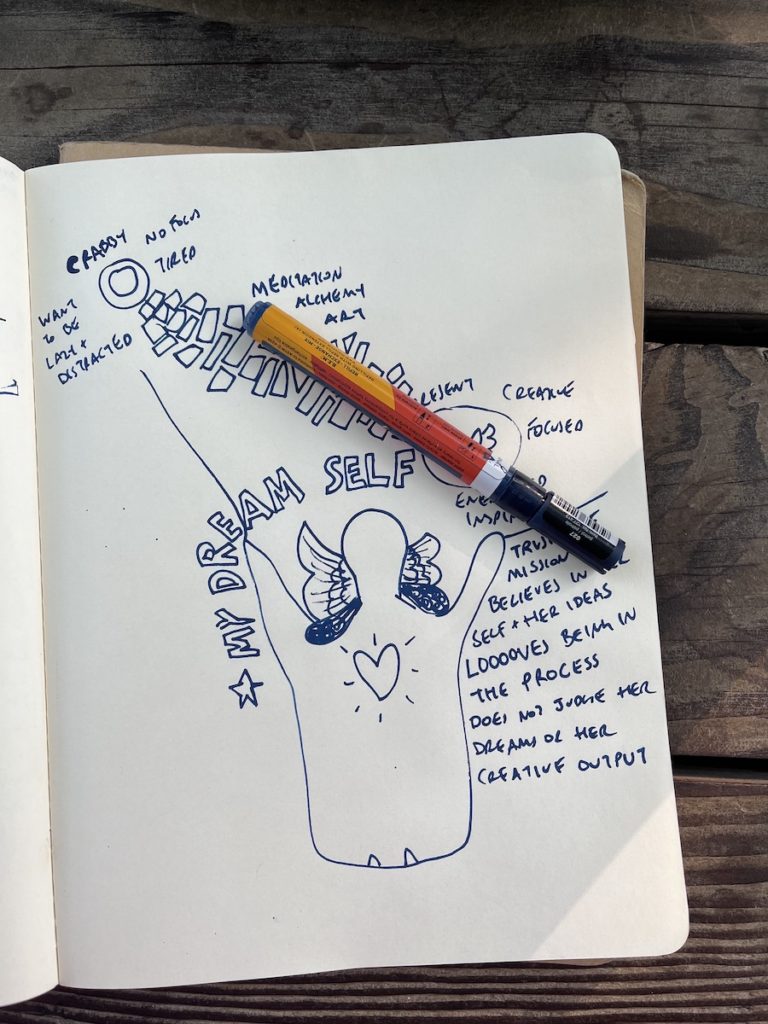 CRABBY
NO FOCUS
TIRED
WANT
TO BE
LAZY +
DISTRACTED
MEDITATION
ALCHEMY
ART
RESENT
CREATIVE
FOCUSED
ENE
INSPI
☆ MY DREAM SELF
TRUS
MISSION
BELIEVES IN
SELF + HER IDEAS
LOOOOVES BEING IN
THE PROCESS
DOES NOT JUDGE HER
DREAMS OR HER
CREATIVE OUTPUT
027